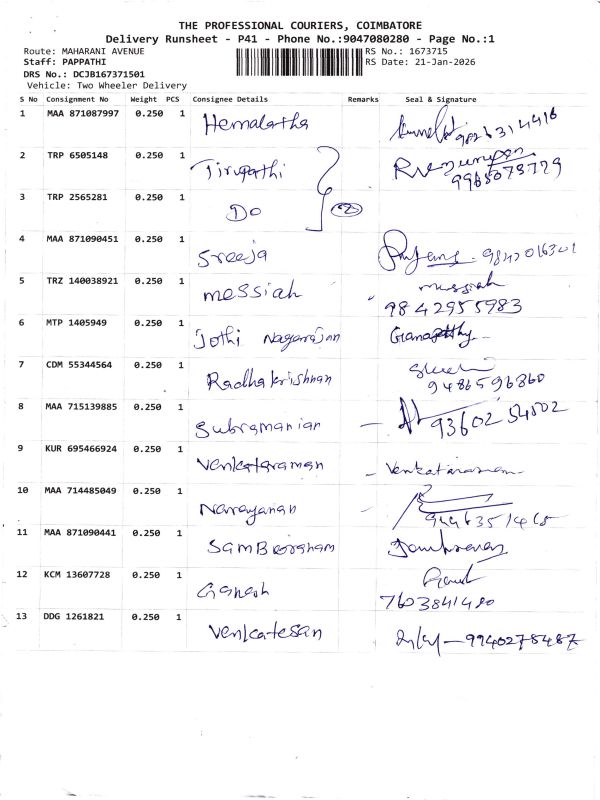 THE PROFESSIONAL COURIERS, COIMBATORE
Delivery Runsheet - P41 - Phone No.:9047080280 - Page No.:1
Route: MAHARANI AVENUE RS No.: 1673715
Staff: PAPPATHI RS Date: 21-Jan-2026
DRS No.: DCJB167371501
Vehicle: Two Wheeler Delivery
S No Consignment No Weight PCS Consignee Details Remarks Seal & Signature
1 MAA 871087997 0.250 1 Hemalatha 9826314416
2 TRP 6505148 0.250 1 Tirupathi
3 TRP 2565281 0.250 1 Do 2
4 MAA 871090451 0.250 1 Sreeja
5 TRZ 140038921 0.250 1 messiah messiah
9842955983
6 MTP 1405949 0.250 1 Jothi Nagarajan Ganapathy
7 CDM 55344564 0.250 1 Radhakrishnan
9486596860
8 MAA 715139885 0.250 1 Subramanian 9360254002
9 KUR 695466924 0.250 1 Venkataraman Venkataraman
10 MAA 714485049 0.250 1 Narayanan
11 MAA 871090441 0.250 1
12 KCM 13607728 0.250 1 Ganesh
7603841480
13 DDG 1261821 0.250 1 Venkatesan 9940278487